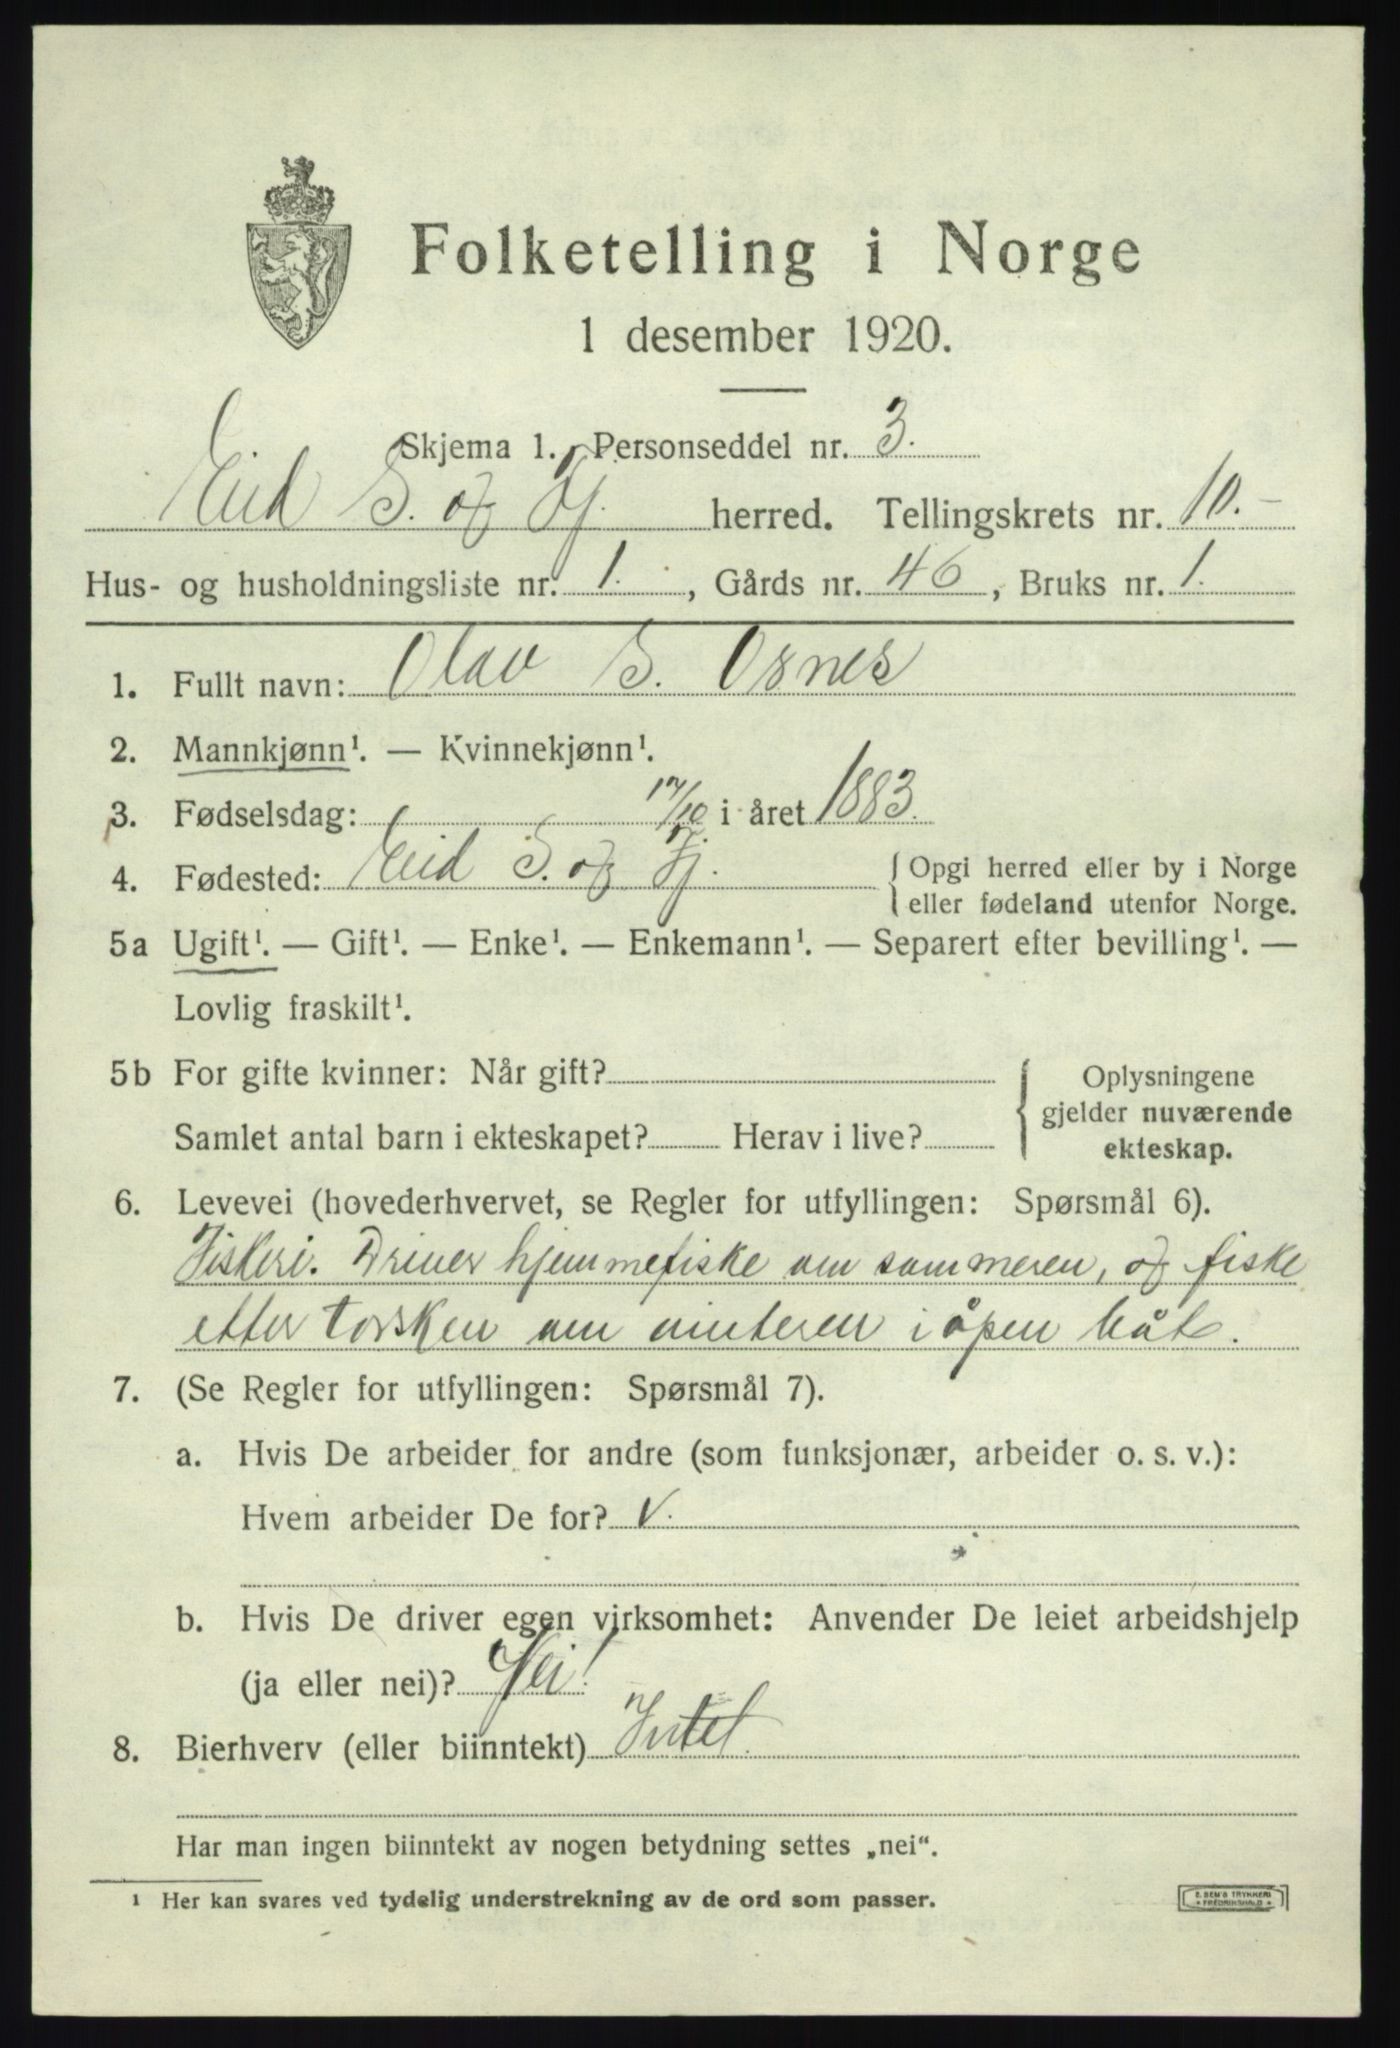 Folketelling i Norge
1 desember 1920.
Skjema 1. Personseddel nr. 3.
Eid S. og Fj. herred. Tellingskrets nr. 10.-
Hus- og husholdningsliste nr. 1., Gårds nr. 46, Bruks nr. 1.
1. Fullt navn: Olav S. Osnes
2. Mannkjønn¹. — Kvinnekjønn¹.
3. Fødselsdag: 17/10 i året 1883.
4. Fødested: Eid S. og Fj. { Opgi herred eller by i Norge
eller fødeland utenfor Norge.
5a Ugift¹. — Gift¹. — Enke¹. — Enkemann¹. — Separert efter bevilling¹. —
Lovlig fraskilt¹.
5b For gifte kvinner: Når gift? { Oplysningene
gjelder nuværende
Samlet antal barn i ekteskapet? Herav i live?
ekteskap.
6. Levevei (hovederhvervet, se Regler for utfyllingen: Spørsmål 6).
Fiskeri. Driver hjemmefiske om sommeren, og fiske
etter torsken om vinteren i åpen båt.
7. (Se Regler for utfyllingen: Spørsmål 7).
a. Hvis De arbeider for andre (som funksjonær, arbeider o. s. v.):
Hvem arbeider De for? v.
b. Hvis De driver egen virksomhet: Anvender De leiet arbeidshjelp
(ja eller nei)? Nei!
8. Bierhverv (eller biinntekt) Intet.
Har man ingen biinntekt av nogen betydning settes „nei“.
¹ Her kan svares ved tydelig understrekning av de ord som passer.
E. SEM'S TRYKKERI
FREDRIKSHALD